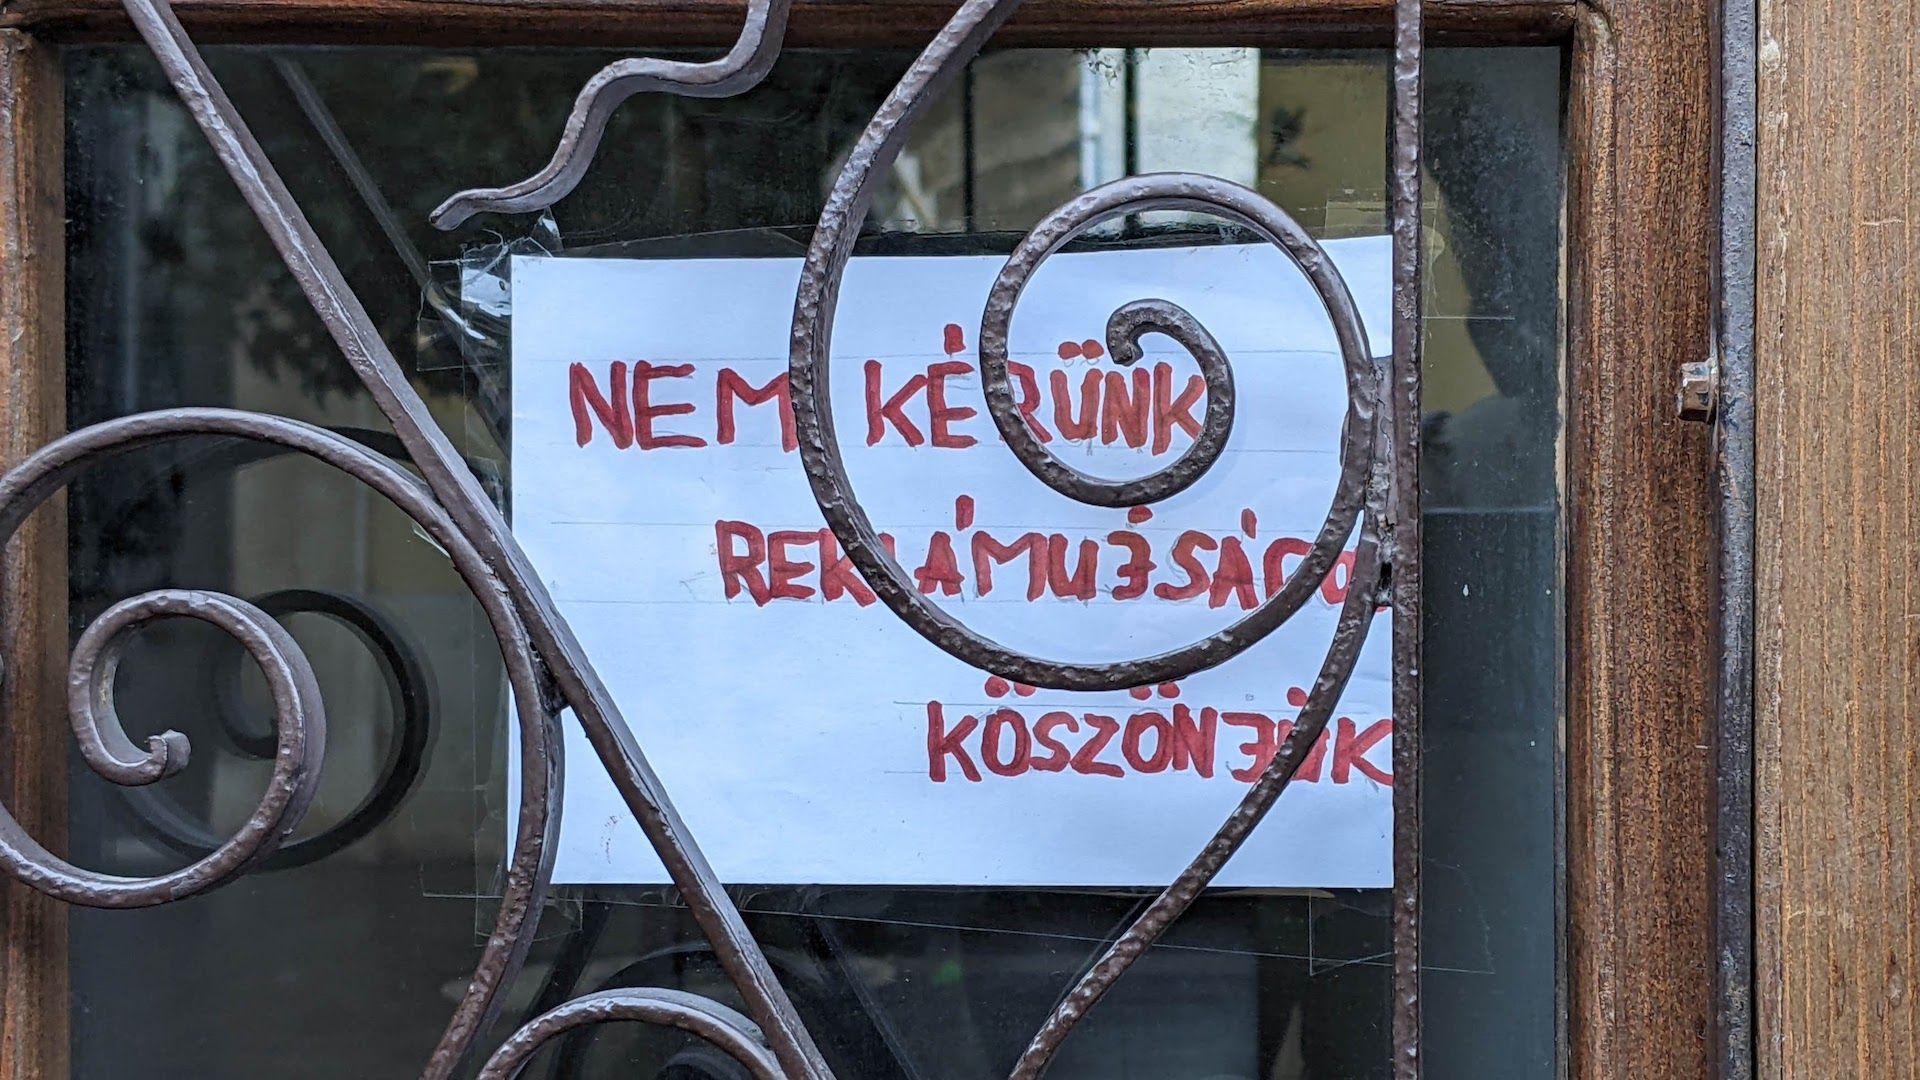 NEM KÉRÜNK
REKLÁMÚJSÁGO
KÖSZÖNJÜK